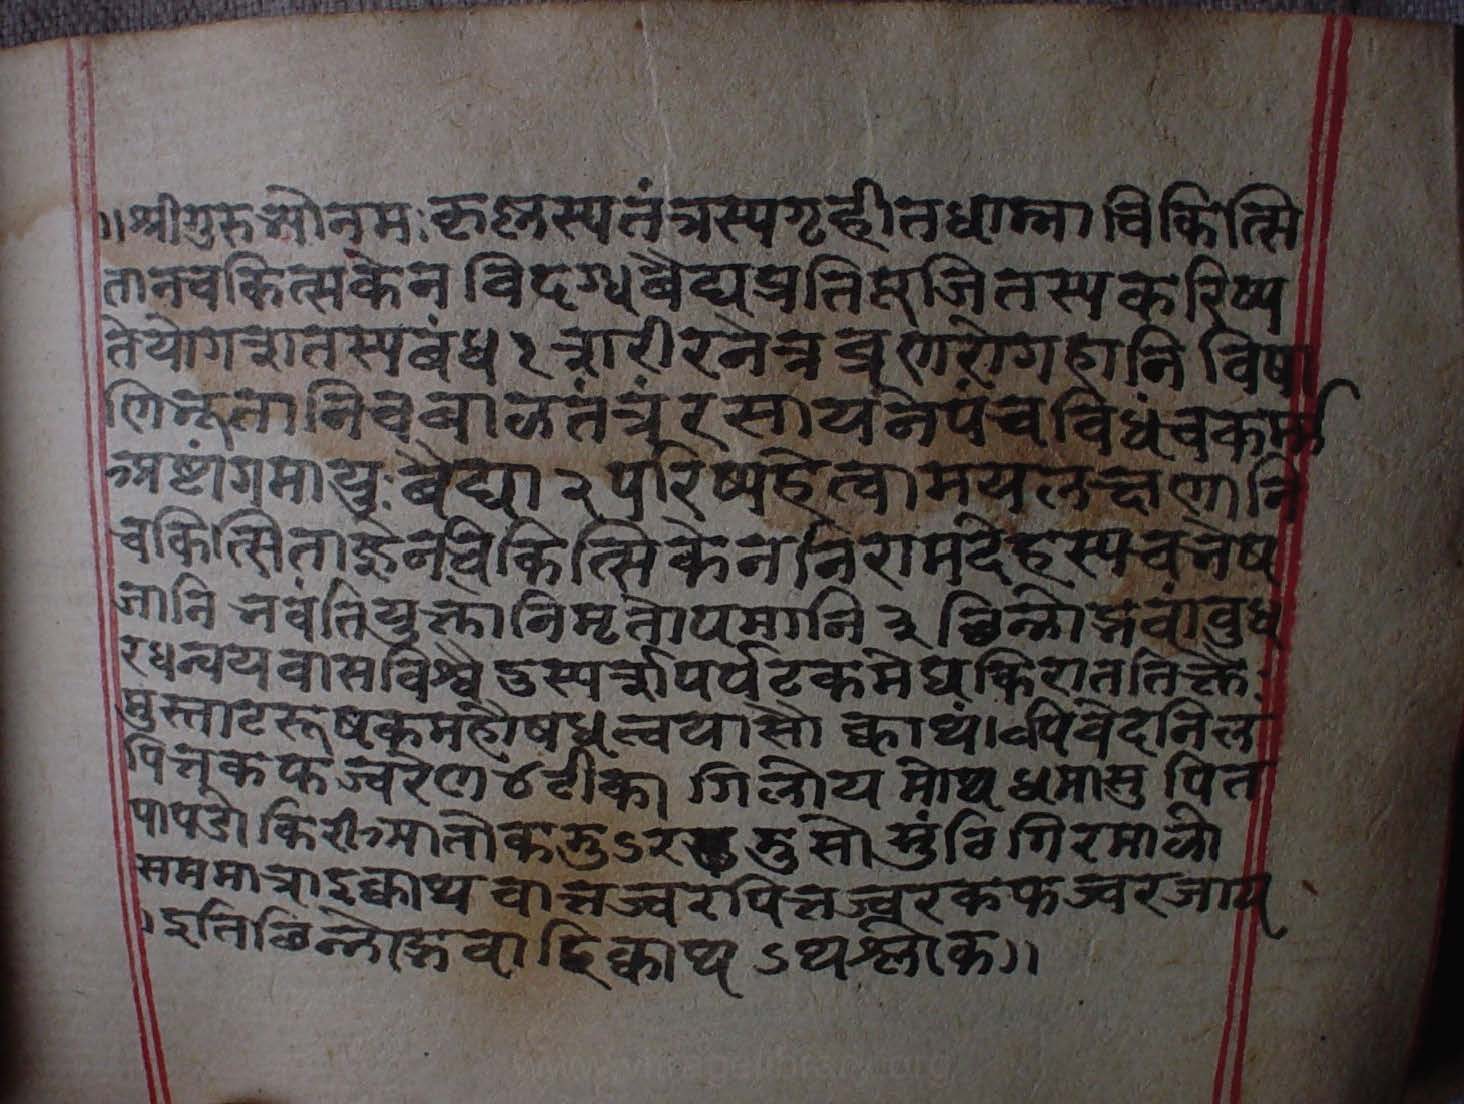 ॥श्रीगुरुभ्योनमः कृष्नस्यतंत्रस्यगृहीतधाम्ना चिकित्सि
तानचकित्सकेन विदग्धबैद्यप्रतिपूजितस्य करिष्य
तेयोगशातस्यबंध १ शारीरनेत्रव्रणरोगहानि विषा
णिभूतानिचबालतंत्रं रसायनेपंचविधंचकर्म
अष्टांगमायुः बैद्या २ परिष्यहेत्वामयलक्षणानि
चकित्सिताज्ञेनचिकित्सिकेन निरामदेहस्यचभेष
जानि भवंतियुक्तानिमृतोपमानि ३ छिन्नोद्भवांबुध
रधन्वयवासविश्वै दुस्पर्शापर्पटकमेघकिराततिक्तैः
मुस्ताटरूषकमहौषधन्वयासो क्वाथं। पिवेदनिल
पित्तकफज्वरेण ४ टीका गिलोय मोथ धमासु पित
पापडो किरीआतो कमुऽर मुसो सुंठि गिरमालो
सममात्राऽक्वाथ वातज्वर पित्तज्वर कफज्वर जाय
। इतिछिन्नोद्भवादिक्वाथ ऽथश्लोक॥
www.vintagelibrary.org